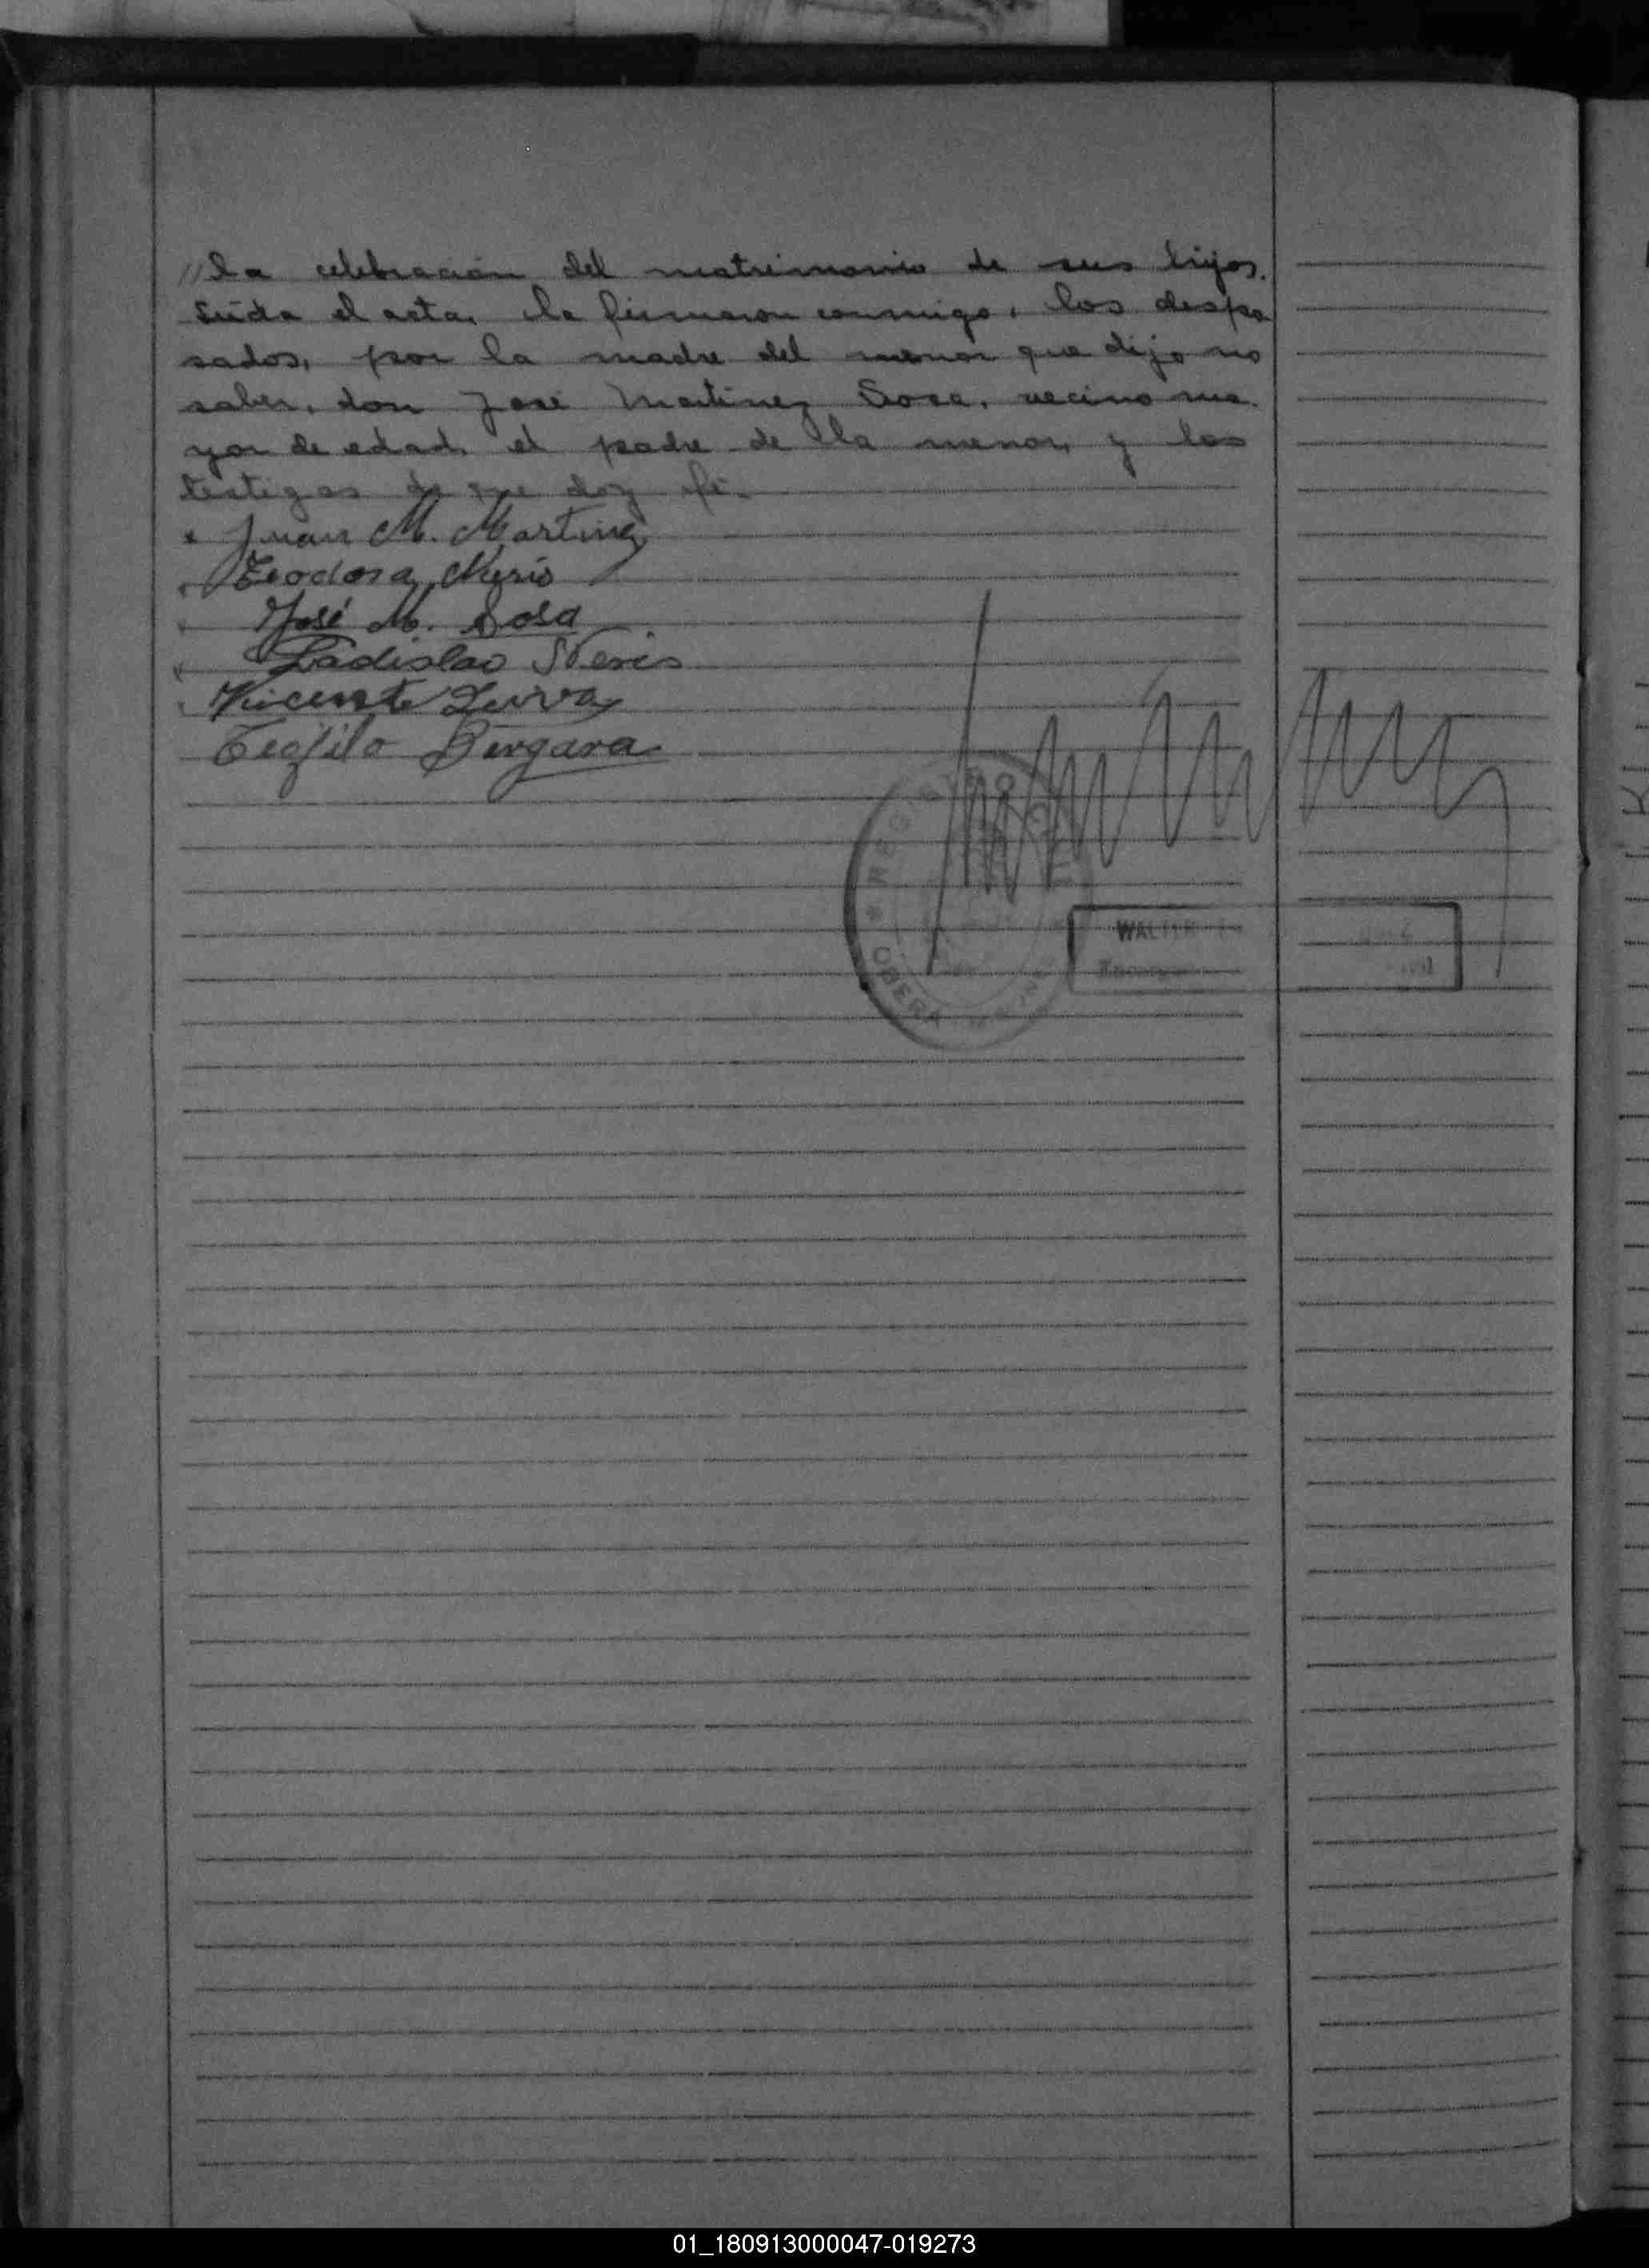 // la celebración del matrimonio de sus hijos.
Leída el acta, la firmaron conmigo, los despo
sados, por la madre del menor que dijo no
saber, don José Martinez Sosa, vecino ma
yor de edad, el padre de la menor, y los
testigos de que doy fé.
Juan M. Martinez
Teodora Neris
José M. Sosa
Ladislao Neris
Vicente
Teofilo Bergara
REGISTRO CIVIL
* OBERA MISIONES
WALTER
01_180913000047-019273